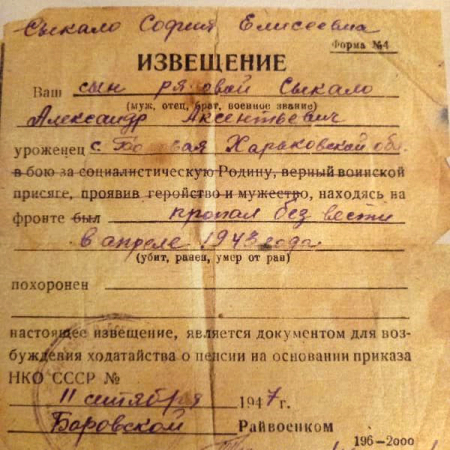 Сыкало София Елисеевна
Форма №4
ИЗВЕЩЕНИЕ
Ваш сын рядовой Сыкало
(муж, отец, брат, военное звание)
Александр Аксентьевич
уроженец с. Харьковской об
в бою за социалистическую Родину, верный воинской
присяге, проявив геройство и мужество, находясь на
фронте был пропал без вести
в апреле 1943 года
(убит, ранен, умер от ран)
похоронен
настоящее извещение, является документом для воз-
буждения ходатайства о пенсии на основании приказа
НКО СССР №
11 сентября 1947 г.
Боровском Райвоенком
196—2000